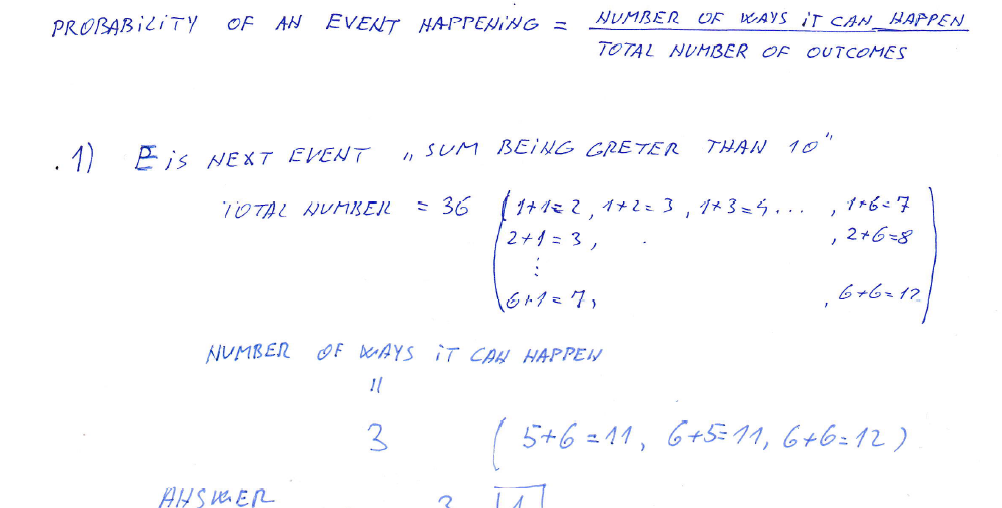 PROBABILITY OF AN EVENT HAPPENING = NUMBER OF WAYS iT CAN HAPPEN
TOTAL NUMBER OF OUTCOMES
.1) E is NEXT EVENT „ SUM BEING GRETER THAN 10"
TOTAL NUMBER = 36 ( 1+1=2, 1+2=3, 1+3=4..., 1+6=7
2+1=3, . , 2+6=8
⋮
6+1=7, , 6+6=12 )
NUMBER OF WAYS iT CAN HAPPEN
||
3 ( 5+6=11, 6+5=11, 6+6=12 )
ANSWER